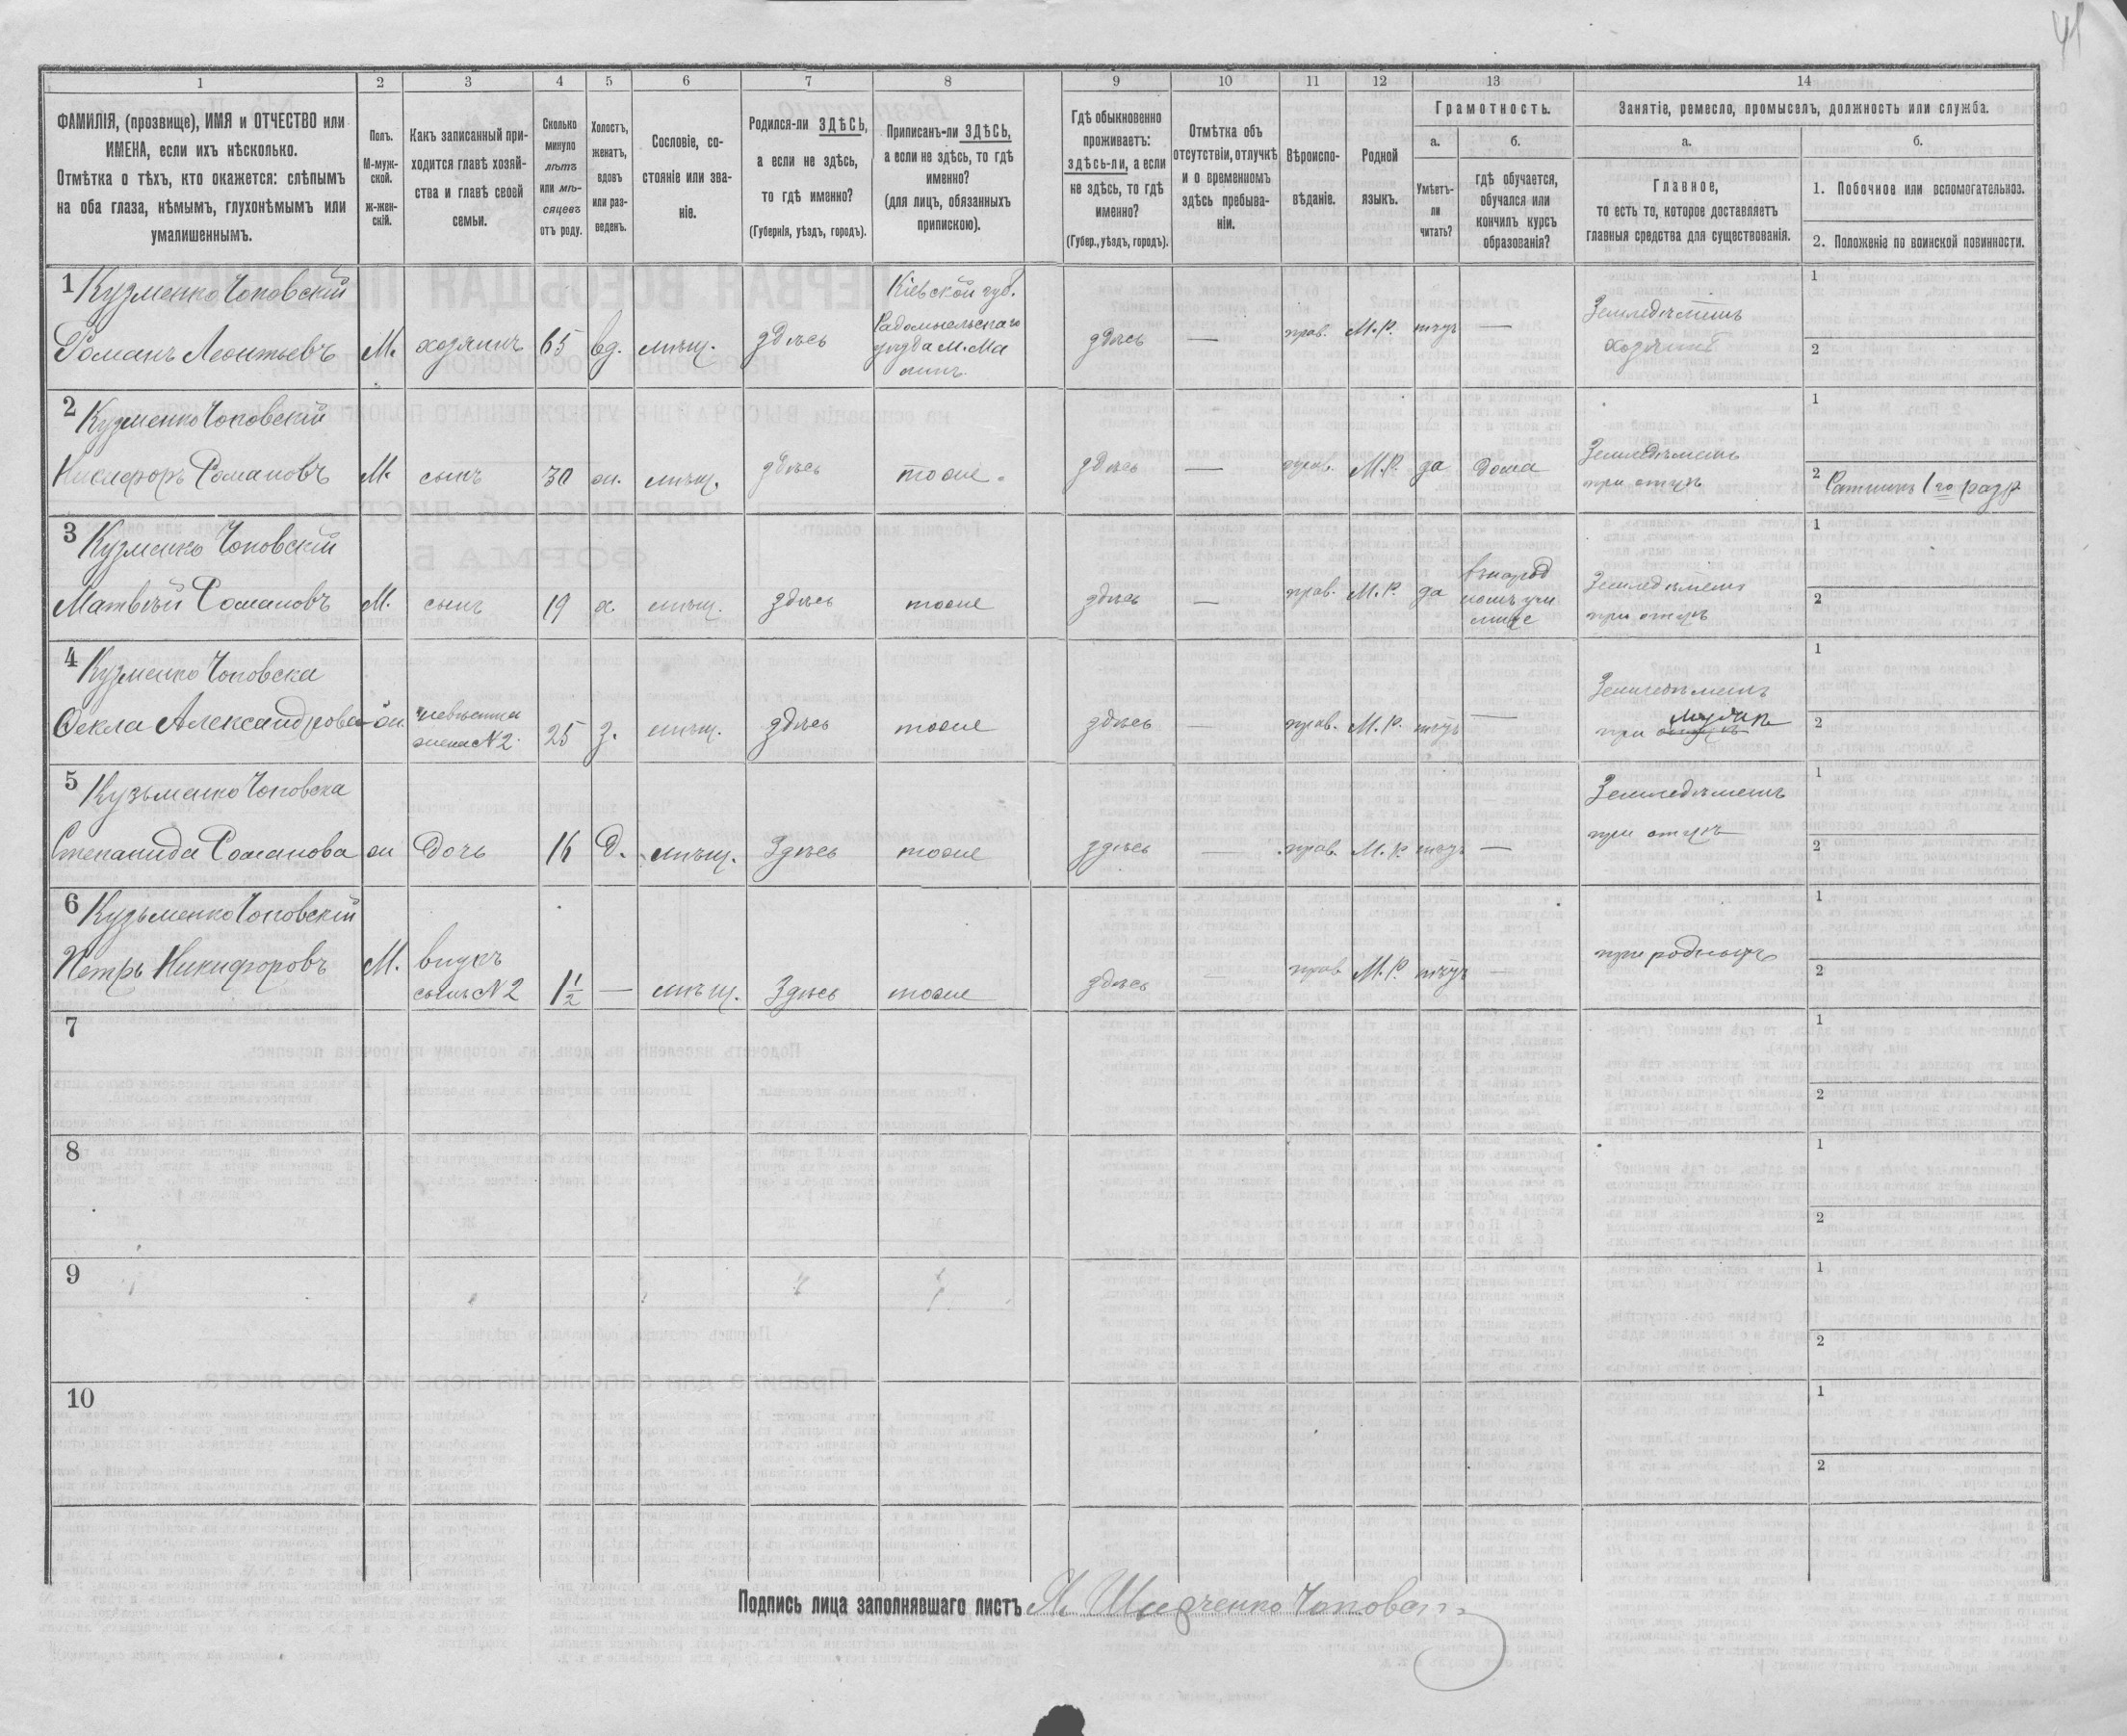 41
1 2 3 4 5 6 7 8 9 10 11 12 13 14
ФАМИЛІЯ, (прозвище), ИМЯ и ОТЧЕСТВО или
ИМЕНА, если ихъ нѣсколько.
Отмѣтка о тѣхъ, кто окажется: слѣпымъ
на оба глаза, нѣмымъ, глухонѣмымъ или
умалишеннымъ.
Полъ.
М-муж-
ской.
ж-жен-
скій.
Какъ записанный при-
ходится главѣ хозяй-
ства и главѣ своей
семьи.
Сколько
минуло
лѣтъ
или мѣ-
сяцевъ
отъ роду.
Холостъ,
женатъ,
вдовъ
или раз-
веденъ.
Сословіе, со-
стояніе или зва-
ніе.
Родился-ли ЗДѢСЬ,
а если не здѣсь,
то гдѣ именно?
(Губернія, уѣздъ, городъ).
Приписанъ-ли ЗДѢСЬ,
а если не здѣсь, то гдѣ
именно?
(для лицъ, обязанныхъ
припискою).
Гдѣ обыкновенно
проживаетъ:
здѣсь-ли, а если
не здѣсь, то гдѣ
именно?
(Губер., уѣздъ, городъ).
Отмѣтка объ
отсутствіи, отлучкѣ
и о временномъ
здѣсь пребыва-
ніи.
Вѣроиспо-
вѣданіе.
Родной
языкъ.
Грамотность.
а.
Умѣетъ-
ли
читать?
б.
гдѣ обучается,
обучался или
кончилъ курсъ
образованія?
Занятіе, ремесло, промыселъ, должность или служба.
а.
Главное,
то есть то, которое доставляетъ
главныя средства для существованія.
б.
1. Побочное или вспомогательное.
2. Положеніе по воинской повинности.
1 Кузменко Чоповскій
Романъ Леонтьевъ М. хозяинъ 65 вд. мѣщ. здѣсь
Кіевской губ.
Радомысльскаго
уѣзда М. Ма
линъ
здѣсь — прав. М.Р. нѣтъ —
Земледѣлецъ
хозяинъ
1
2
2 Кузменко Чоповскій
Никифоръ Романовъ М. сынъ 30 ж. мѣщ. здѣсь тоже. здѣсь — прав. М.Р. да Дома
Земледѣлецъ
при отцѣ
1
2 Ратникъ 1го разр
3 Кузменко Чоповскій
Матвѣй Романовъ М. сынъ 19 х. мѣщ. здѣсь тоже здѣсь — прав. М.Р. да
въ народ
номъ учи
лищѣ
Земледѣлецъ
при отцѣ
1
2
4 Кузменко Чоповска
Ѳекла Александрова ж. невѣстка
жена N2. 25 з. мѣщ. здѣсь тоже здѣсь — прав. М.Р. нѣтъ —
Земледѣлецъ
при мужѣ
1
2
5 Кузьменко Чоповска
Степанида Романова ж Дочь 16 Д. мѣщ. Здѣсь тоже здѣсь — прав. М.Р. нѣтъ —
Земледѣлецъ
при отцѣ
1
2
6 Кузьменко Чоповскій
Петръ Никифоровъ М. внукъ
сынъ N2 1 1/2 — мѣщ. Здѣсь тоже здѣсь — прав М.Р. нѣтъ —
при родныхъ
1
2
7
1
2
8
1
2
9
1
2
10
1
2
Подпись лица заполнявшаго листъ